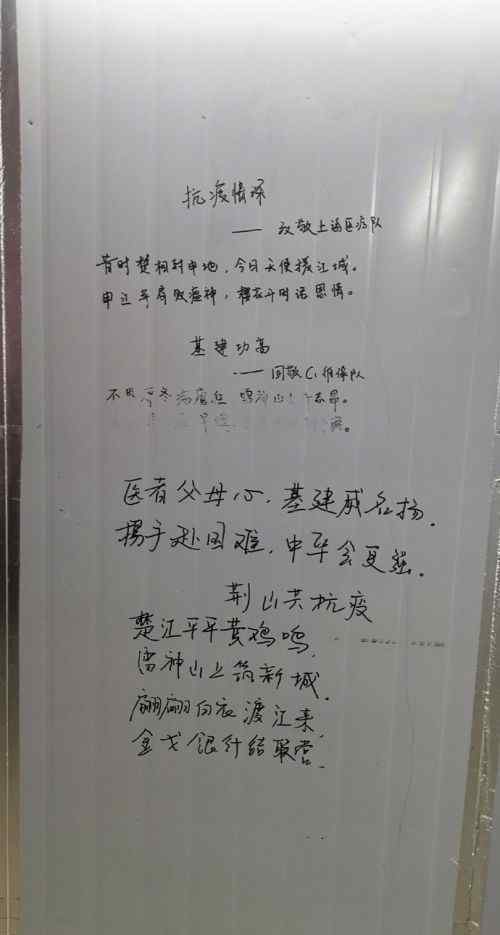 抗疫情深
—— 致敬上海医疗队
昔时楚相封申地,今日天使援江城。
申江平肩败瘟神,樱花开时话恩情。
基建功高
—— 回敬C1维保队
不畏寒冬病魔
医者父母心,基建威名扬,
携手赴国难,中华会更强。
荆山共抗疫
楚江平平黄鸡鸣,
雷神山上筑新城,
翩翩白衣渡江来,
金戈银针结联营,